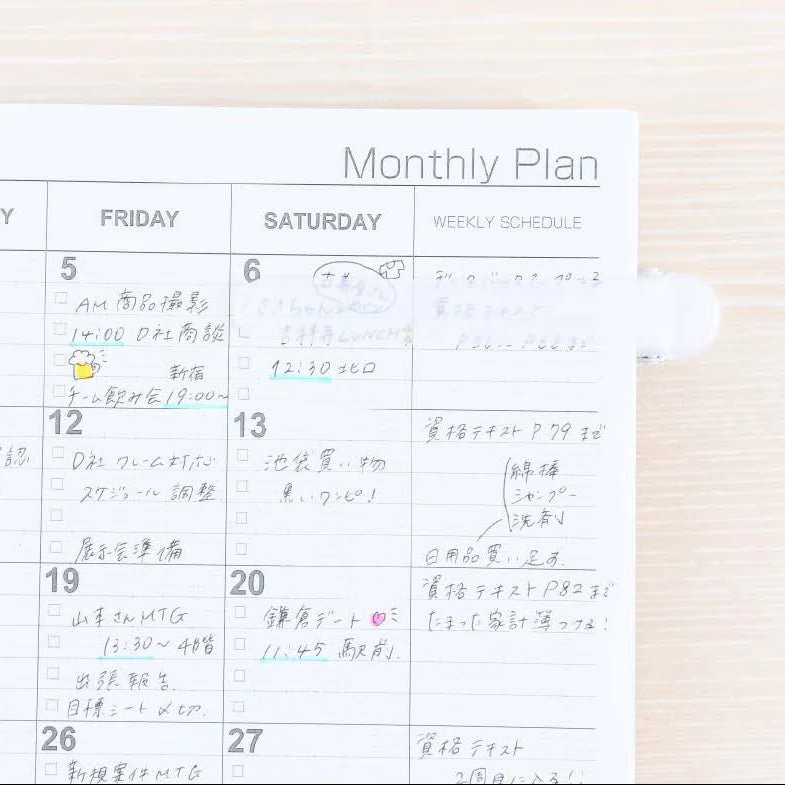 Monthly Plan
Y
FRIDAY
SATURDAY
WEEKLY SCHEDULE
5
AM 商品撮影
14:00 D社商談
新宿
チーム飲み会 19:00~
6
古着屋さん
吉祥寺 LUNCH
12:30 北口
資格テキスト
認
12
D社クレーム対応
スケジュール調整
展示会準備
13
池袋買い物
黒いワンピ!
資格テキスト P79 まで
綿棒
シャンプー
洗剤
日用品買い足す.
19
山本さんMTG
13:30~ 4階
出張報告
目標シート〆切.
20
鎌倉デート
11:45 駅前.
資格テキストP82まで
たまった家計簿つける!
26
新規案件MTG
27
資格テキスト
2周目に入る!!